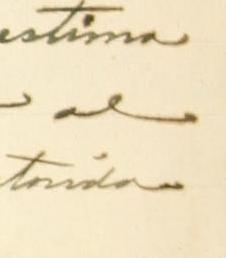 estima
al
torida